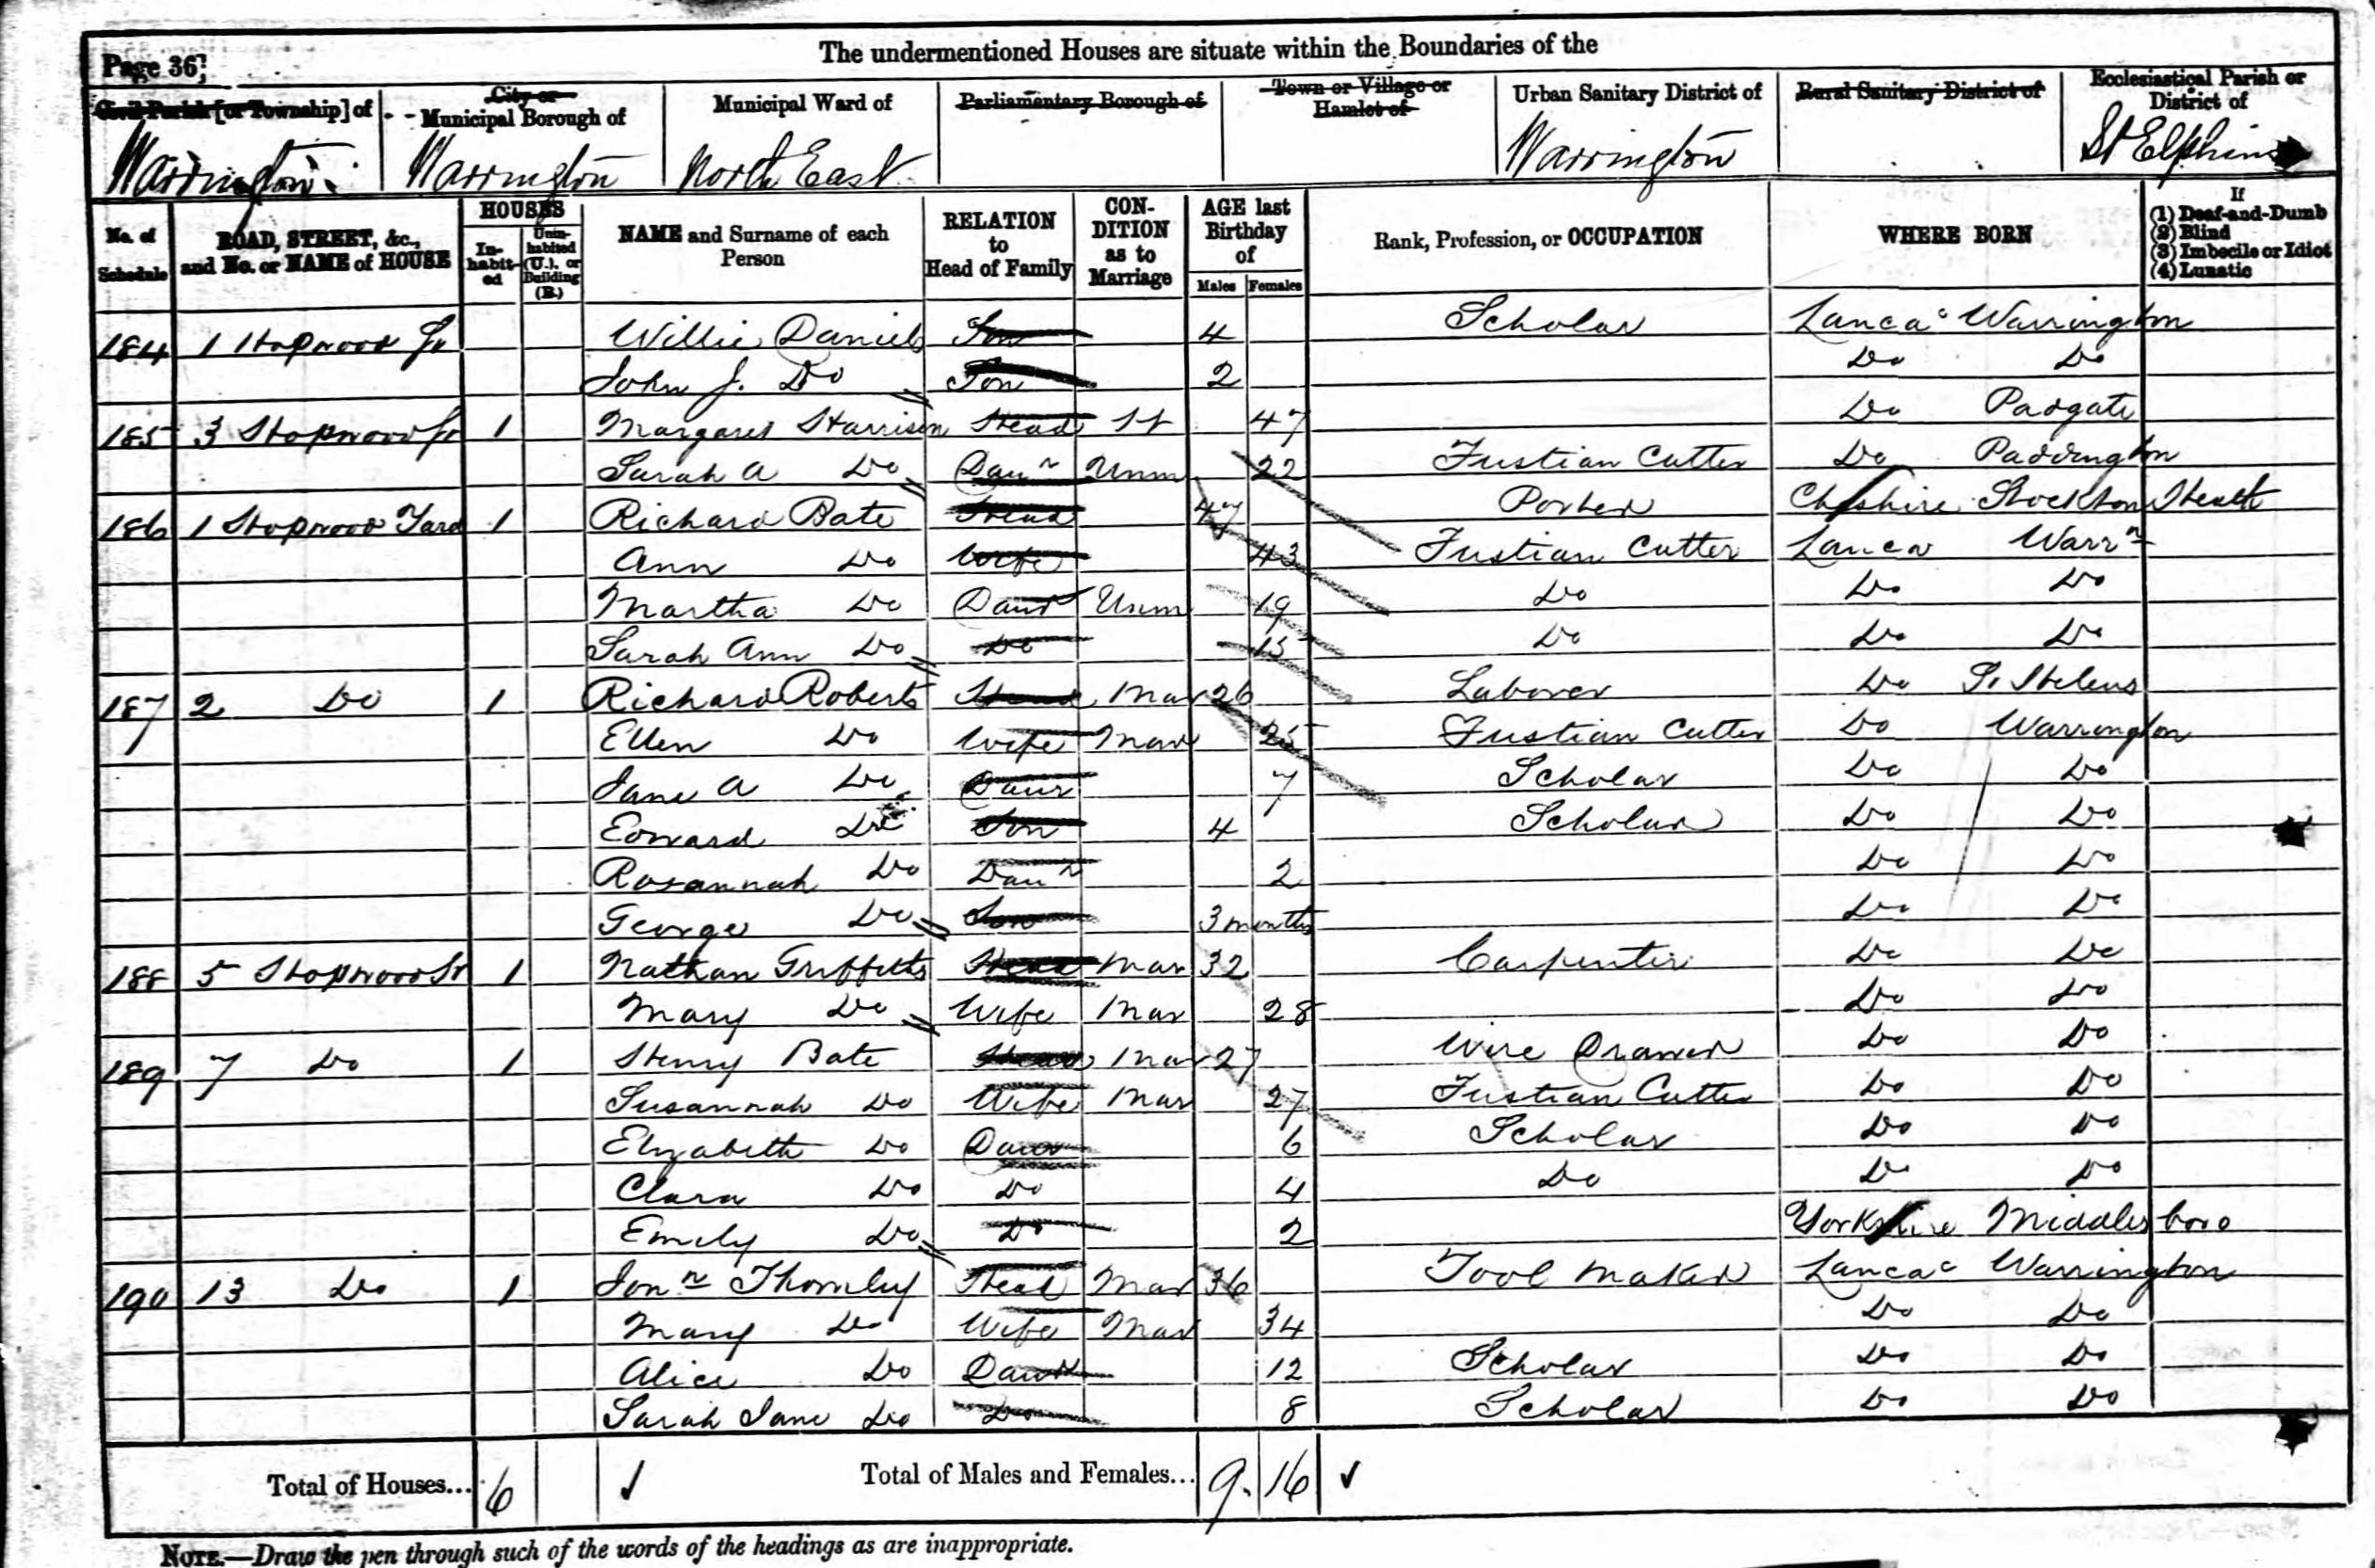 The undermentioned Houses are situate within the Boundaries of the
Page 36]
Civil Parish [or Township] of
City or Municipal Borough of
Municipal Ward of
Parliamentary Borough of
Town or Village or Hamlet of
Urban Sanitary District of
Rural Sanitary District of
Ecclesiastical Parish or District of
Warrington
Warrington
North East
Warrington
St Elphins
No. of Schedule
ROAD, STREET, &c., and No. or NAME of HOUSE
HOUSES
In-habit-ed
Unin-habited (U.), or Building (B.)
NAME and Surname of each Person
RELATION to Head of Family
CON-DITION as to Marriage
AGE last Birthday of
Males
Females
Rank, Profession, or OCCUPATION
WHERE BORN
If
(1) Deaf-and-Dumb
(2) Blind
(3) Imbecile or Idiot
(4) Lunatic
184 1 Hopwood Willie Daniels Son 4 Scholar Lanca Warrington
John J. Do Son 2 Do Do
185 3 Hopwood 1 Margaret Harrison Head 47 Do Padgate
Sarah A Do Daur Unm 22 Fustian Cutter Do Paddington
186 1 Hopwood Yard 1 Richard Bate Head 47 Porter Cheshire Stockton Heath
Ann Do Wife 43 Fustian Cutter Lanca Warrn
Martha Do Daur Unm 19 Do Do Do
Sarah Ann Do Do 15 Do Do Do
187 2 Do 1 Richard Roberts Head Mar 26 Laborer Do St Helens
Ellen Do Wife Mar 25 Fustian Cutter Do Warrington
Jane A Do Daur 7 Scholar Do Do
Edward Do Son 4 Scholar Do Do
Rosannah Do Daur 2 Do Do
George Do Son 3 months Do Do
188 5 Hopwood St 1 Nathan Griffiths Head Mar 32 Carpenter Do Do
Mary Do Wife Mar 28 Do Do
189 7 Do 1 Henry Bate Head Mar 27 Wire Drawer Do Do
Susannah Do Wife Mar 27 Fustian Cutter Do Do
Elizabeth Do Daur 6 Scholar Do Do
Clara Do Do 4 Do Do Do
Emily Do Do 2 Yorkshire Middlesboro
190 13 Do 1 Jonn Thornley Head Mar 36 Tool Maker Lancac Warrington
Mary Do Wife Mar 34 Do Do
Alice Do Daur 12 Scholar Do Do
Sarah Jane Do Do 8 Scholar Do Do
Total of Houses... 6 Total of Males and Females... 9. 16
NOTE.—Draw the pen through such of the words of the headings as are inappropriate.